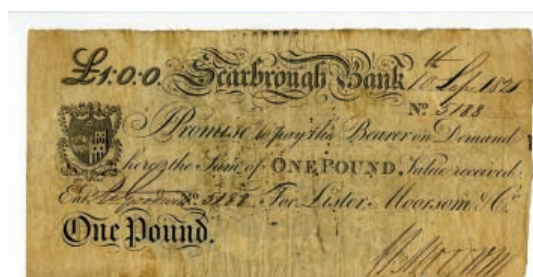 £1:0:0. Scarbrough Bank 10th Sep. 1821
No. 5188
I Promise to pay the Bearer on Demand
here the Sum of ONE POUND. Value received.
Entd. No. 5188 For Lister, Moorsom & Co.
One Pound.